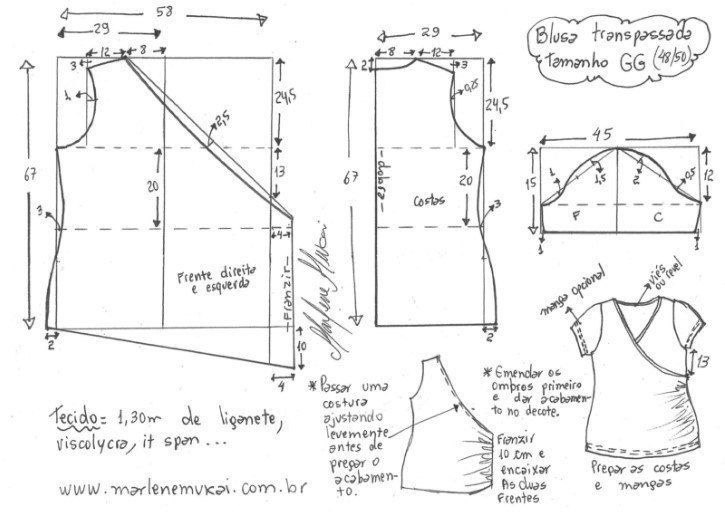 58
29
12
8
3
1
2,5
24,5
13
20
67
3
4
Frente direita
e esquerda
-Franzir-
2
10
4
Marlene Mukai
29
8
12
2
3
0,25
24,5
67
-dobra-
20
costas
3
2
Blusa transpassada
tamanho GG (48/50)
45
15
12
1
1,5
2
0,5
F
C
1
1
manga opcional
viés
ou revel
13
Preparas costas
e mangas
* Passar uma
costura
ajustando
levemente
antes de
prepar o
acabamento.
* Emendar os
ombros primeiro
e dar acabamen-
to no decote.
Franzir
10 cm e
encaixar
As duas
Frentes
Tecido = 1,30m de liganete,
viscolycra, it span ...
www.marlenemukai.com.br